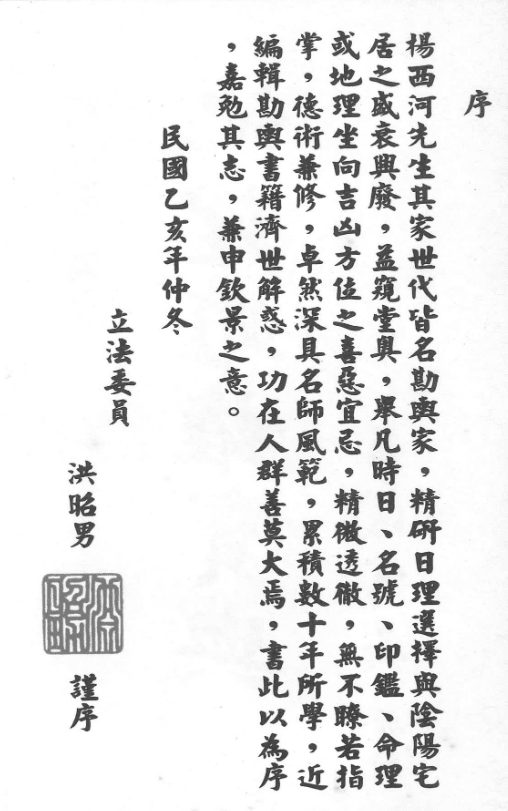 序
楊西河先生其家世代皆名勘輿家，精研日理選擇與陰陽宅
居之盛衰興廢，益窺堂輿，舉凡時日、名號、印鑑、命理
或地理坐向吉凶方位之喜惡宜忌，精微透徹，無不瞭若指
掌，德術兼修，卓然深具名師風範，累積數十年所學，近
編輯勘輿書籍濟世解惑，功在人群善莫大焉，書此以為序
，嘉勉其志，兼申欽景之意。
民國乙亥年仲冬
立法委員
洪昭男
謹序